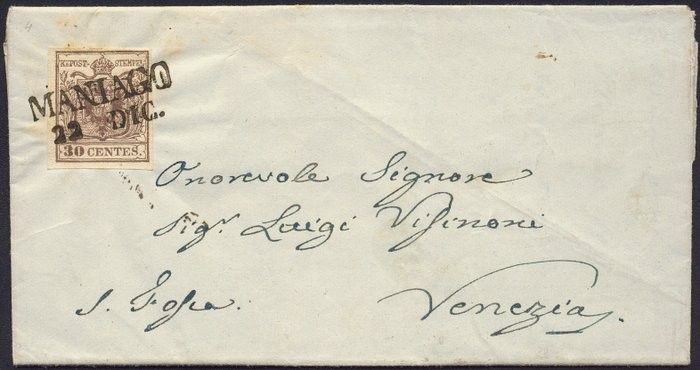 KK.POST-STEMPEL
MANIAGO
22 DIC.
30 CENTES.
Onorevole Signore
Sigr. Luigi Visinoni
S. Fosca.
Venezia.